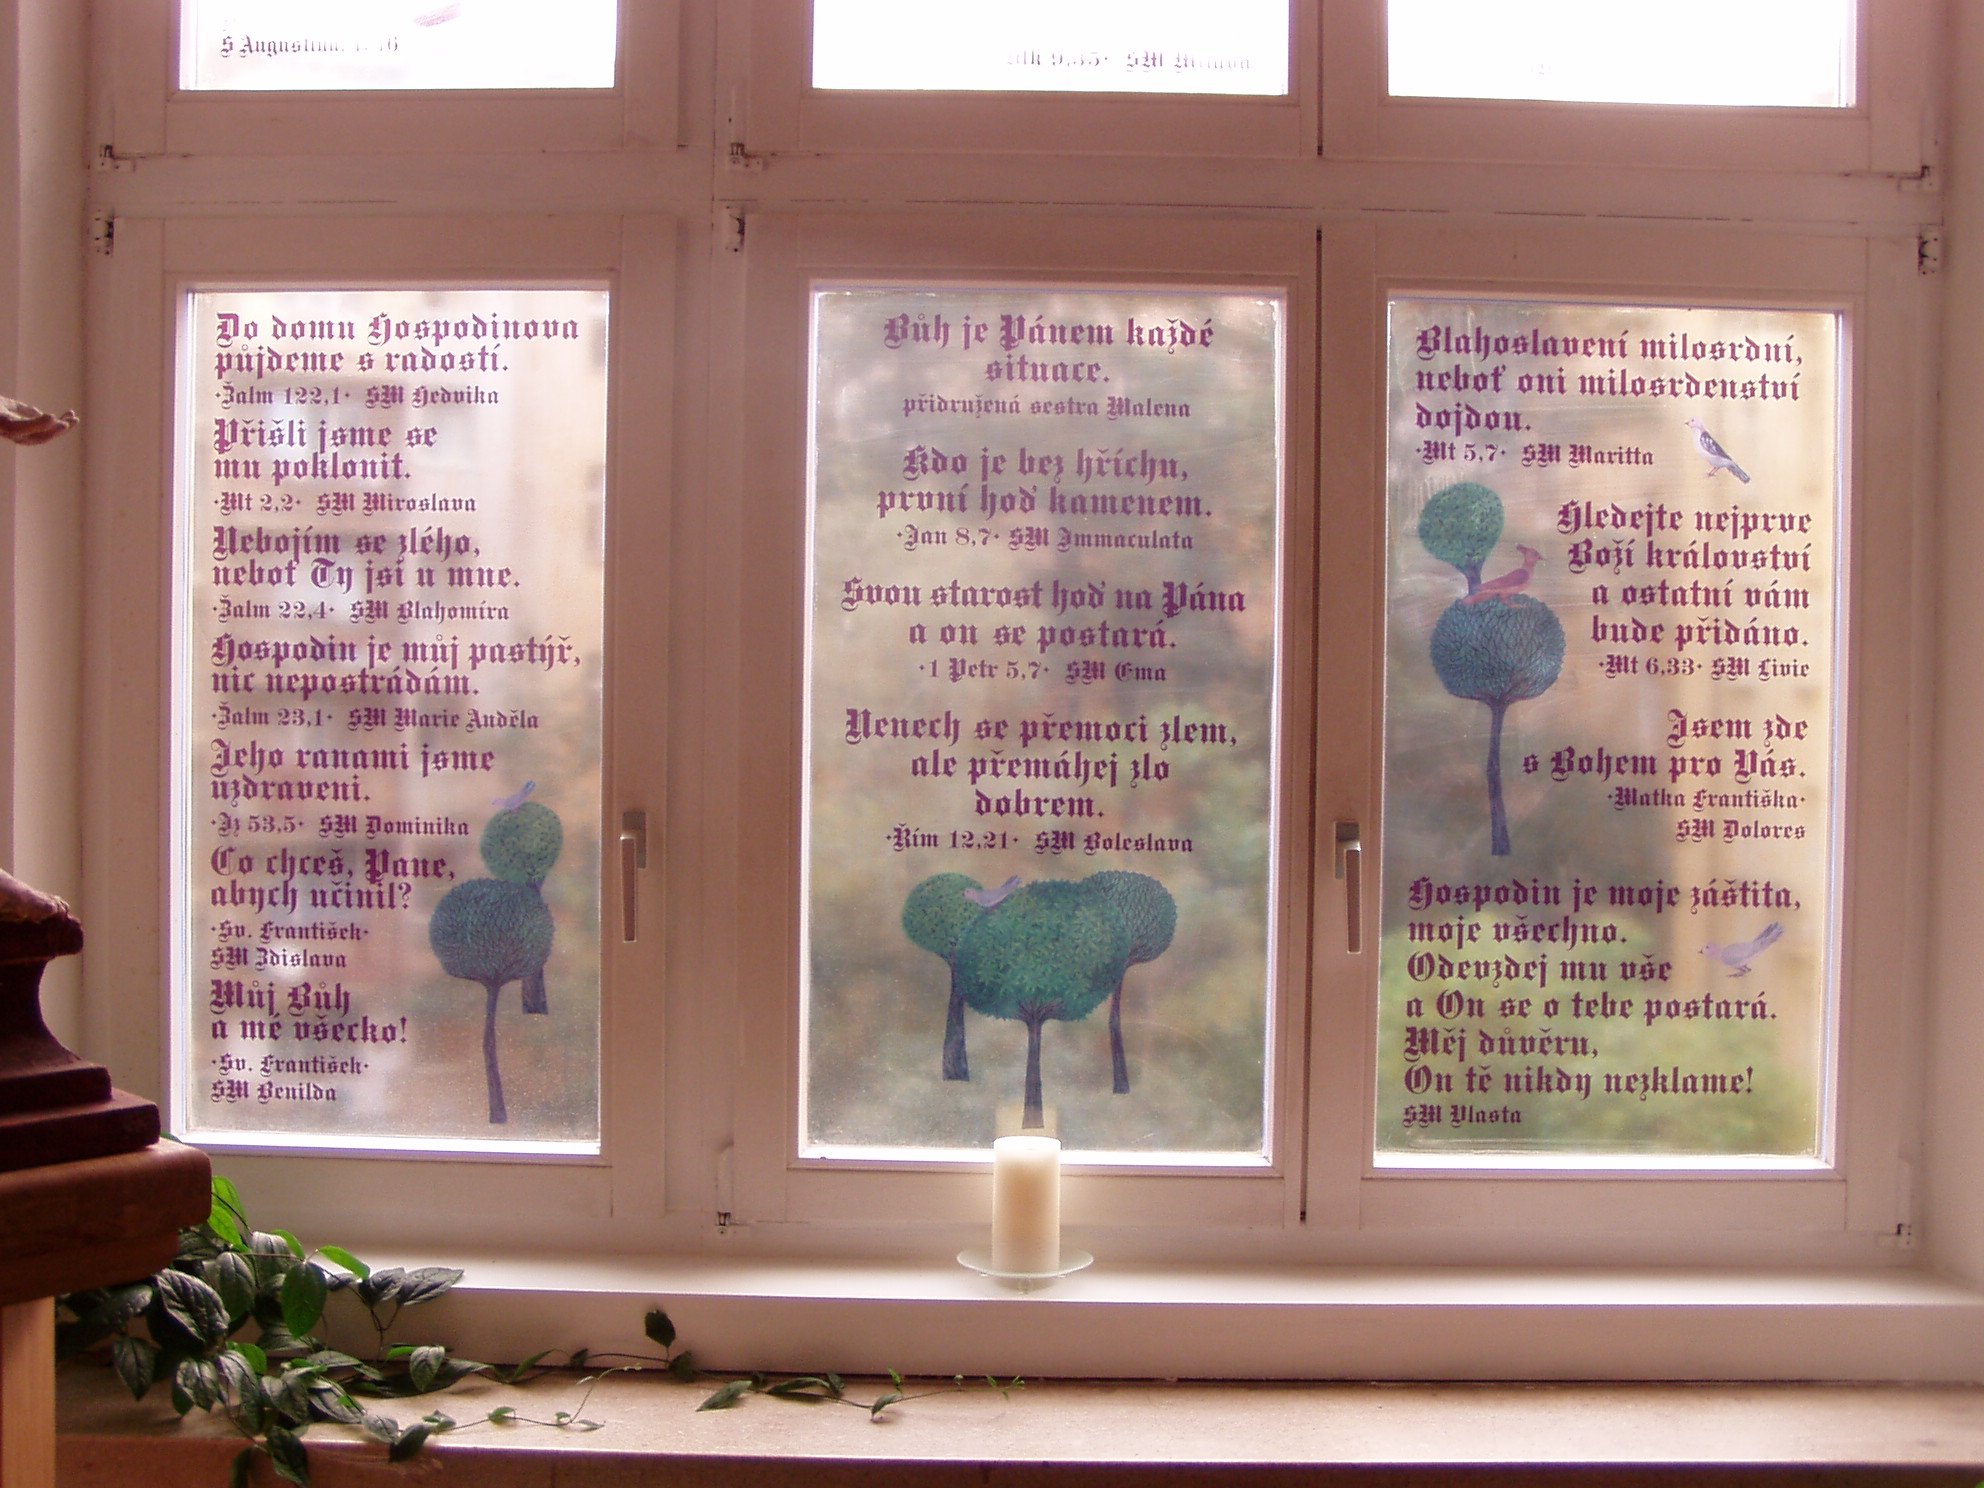 S Augustina,
9,35· SM
Do domu Hospodinova
půjdeme s radostí.
·Žalm 122,1· SM Hedvika
Přišli jsme se
mu poklonit.
·Mt 2,2· SM Miroslava
Nebojím se zlého,
neboť Ty jsi u mne.
·Žalm 22,4· SM Blahomíra
Hospodin je můj pastýř,
nic nepostrádám.
·Žalm 23,1· SM Marie Anděla
Jeho ranami jsme
uzdraveni.
·Iz 53,5· SM Dominika
Co chceš, Pane,
abych učinil?
·Sv. František·
SM Zdislava
Můj Bůh
a mé všecko!
·Sv. František·
SM Benilda
Bůh je Pánem každé
situace.
přidružená sestra Malena
Kdo je bez hříchu,
první hoď kamenem.
·Jan 8,7· SM Immaculata
Svou starost hoď na Pána
a on se postará.
·1 Petr 5,7· SM Ema
Nenech se přemoci zlem,
ale přemáhej zlo
dobrem.
·Řím 12,21· SM Boleslava
Blahoslavení milosrdní,
neboť oni milosrdenství
dojdou.
·Mt 5,7· SM Maritta
Hledejte nejprve
Boží království
a ostatní vám
bude přidáno.
·Mt 6,33· SM Livie
Jsem zde
s Bohem pro Vás.
·Matka Františka·
SM Dolores
Hospodin je moje záštita,
moje všechno.
Odevzdej mu vše
a On se o tebe postará.
Měj důvěru,
On tě nikdy nezklame!
SM Vlasta